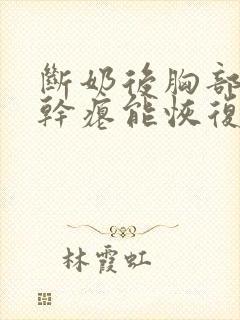 斷奶後胸部
幹癟能恢復
林霞虹